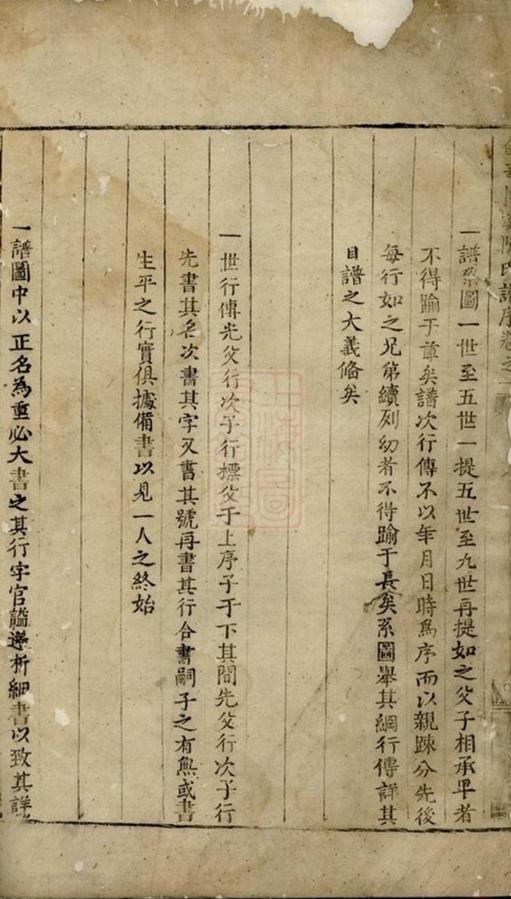 氏譜序卷之一
一譜系圖一世至五世一提五世至九世再提如之父子相承卑者
不得踰于尊矣譜次行傳不以年月日時為序而以親踈分先後
每行如之兄弟續列幼者不得踰于長矣系圖舉其綱行傳詳其
目譜之大義俻矣
一世行傳先父行次子行標父于上序子于下其間先父行次子行
先書其名次書其字又書其號再書其行合書嗣子之有無或書
生平之行實俱據備書以見一人之終始
一譜圖中以正名為重必大書之其行字官謚遷析細書以致其詳